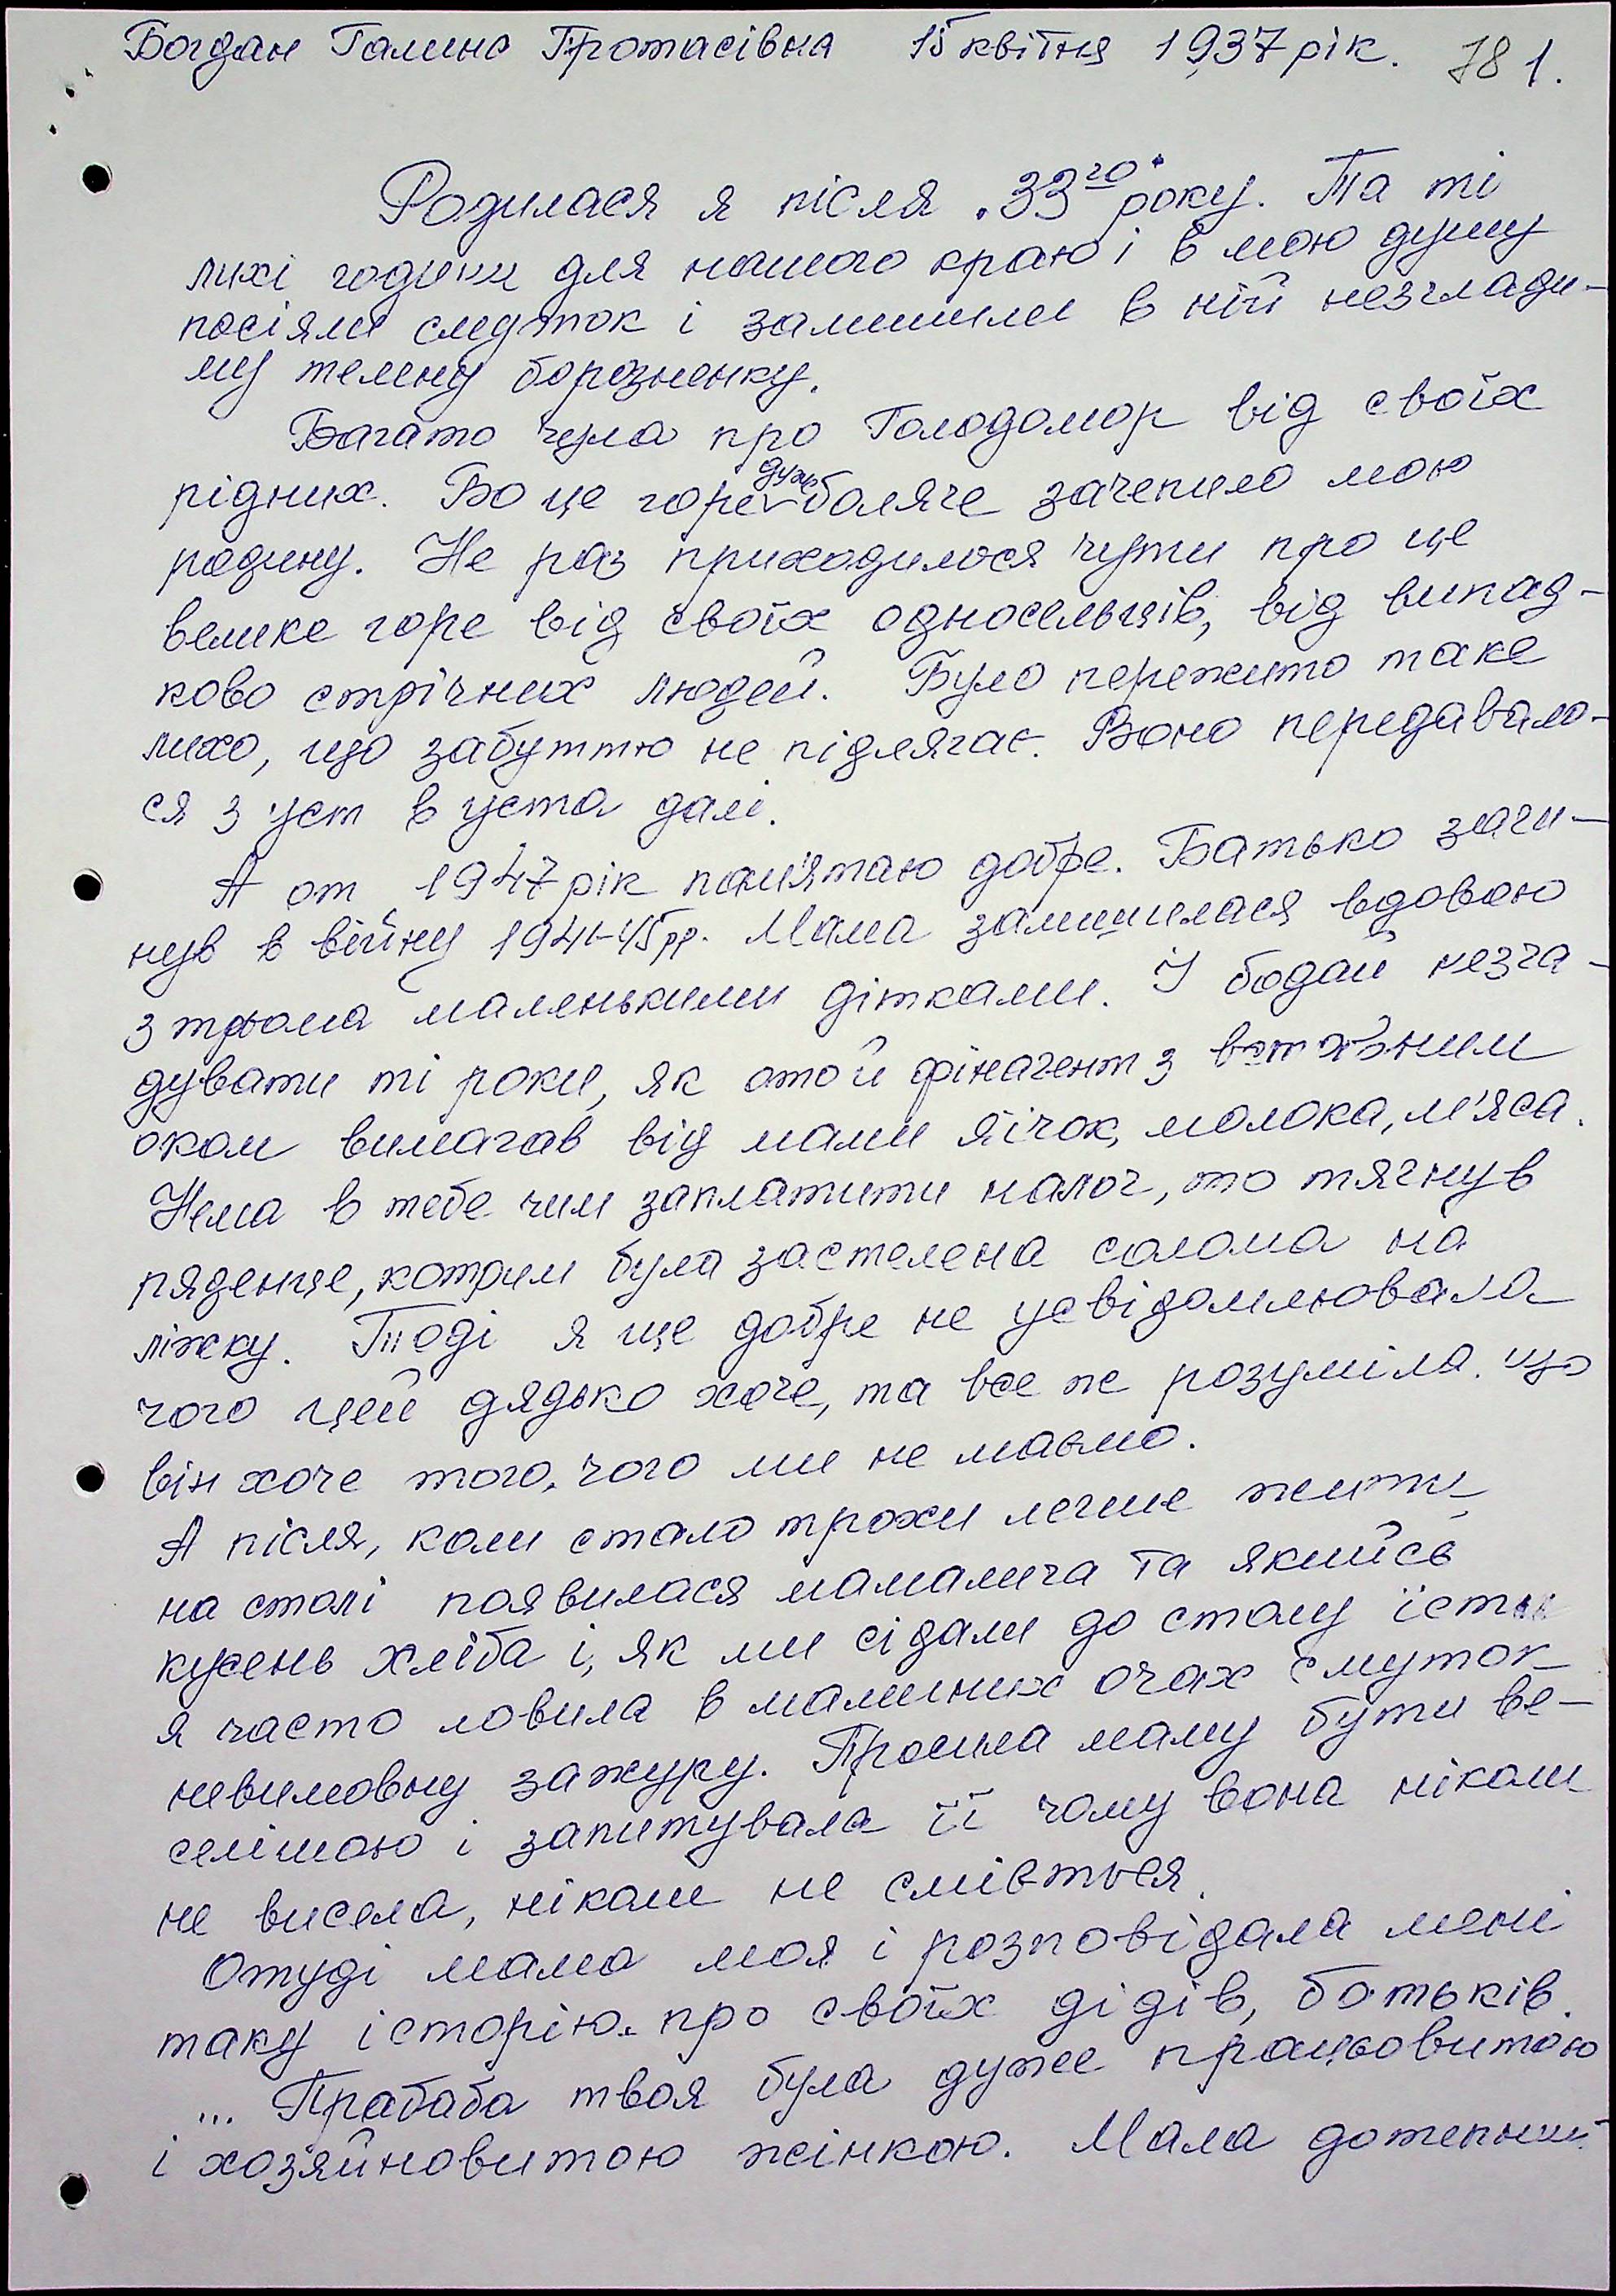 Богдан Галина Протасівна 15 квітня 1937 рік. 78 1.
Родилася я після 33го року. Та ті
лихі години для нашого краю і в мою душу
посіяли смуток і залишили в ній незглади-
му темену борозненку.
Багато чула про Голодомор від своїх
рідних. Бо це горе дуже боляче зачепило мою
родину. Не раз приходилося чути про це
велике горе від своїх односельців, від випад-
ково стрічних людей. Було пережито таке
лихо, що забуттю не підлягає. Воно передавало-
ся з уст в уста далі.
А от 1947 рік пам'ятаю добре. Батько заги-
нув в війну 1941-45 рр. Мама залишилася вдовою
з трьома маленькими дітками. І бодай незга-
дувати ті роки, як отой фінагент з
оком вимагав від мами яїчок, молока, м'яса.
Нема в тебе чим заплатити налог, то тягнув
ряденце, котрим була застелена солома на
ліжку. Тоді я ще добре не усвідомлювала
чого цей дядько хоче, та все же розуміла що
він хоче того, чого ми не маємо.
А після, коли стало трохи легше жити
на столі появилася мамалига та якийсь
кусень хліба і, як ми сідали до столу їсти
я часто ловила в маминих очах смуток
невимовну зажуру. Просила маму бути ве-
селішою і запитувала її чому вона ніколи
не висела, ніколи не сміється.
Отуді мама моя і розповідала мені
таку історію про своїх дідів, батьків.
... Прабаба твоя була дуже працьовитою
і хозяйновитою жінкою. Мала дотепний